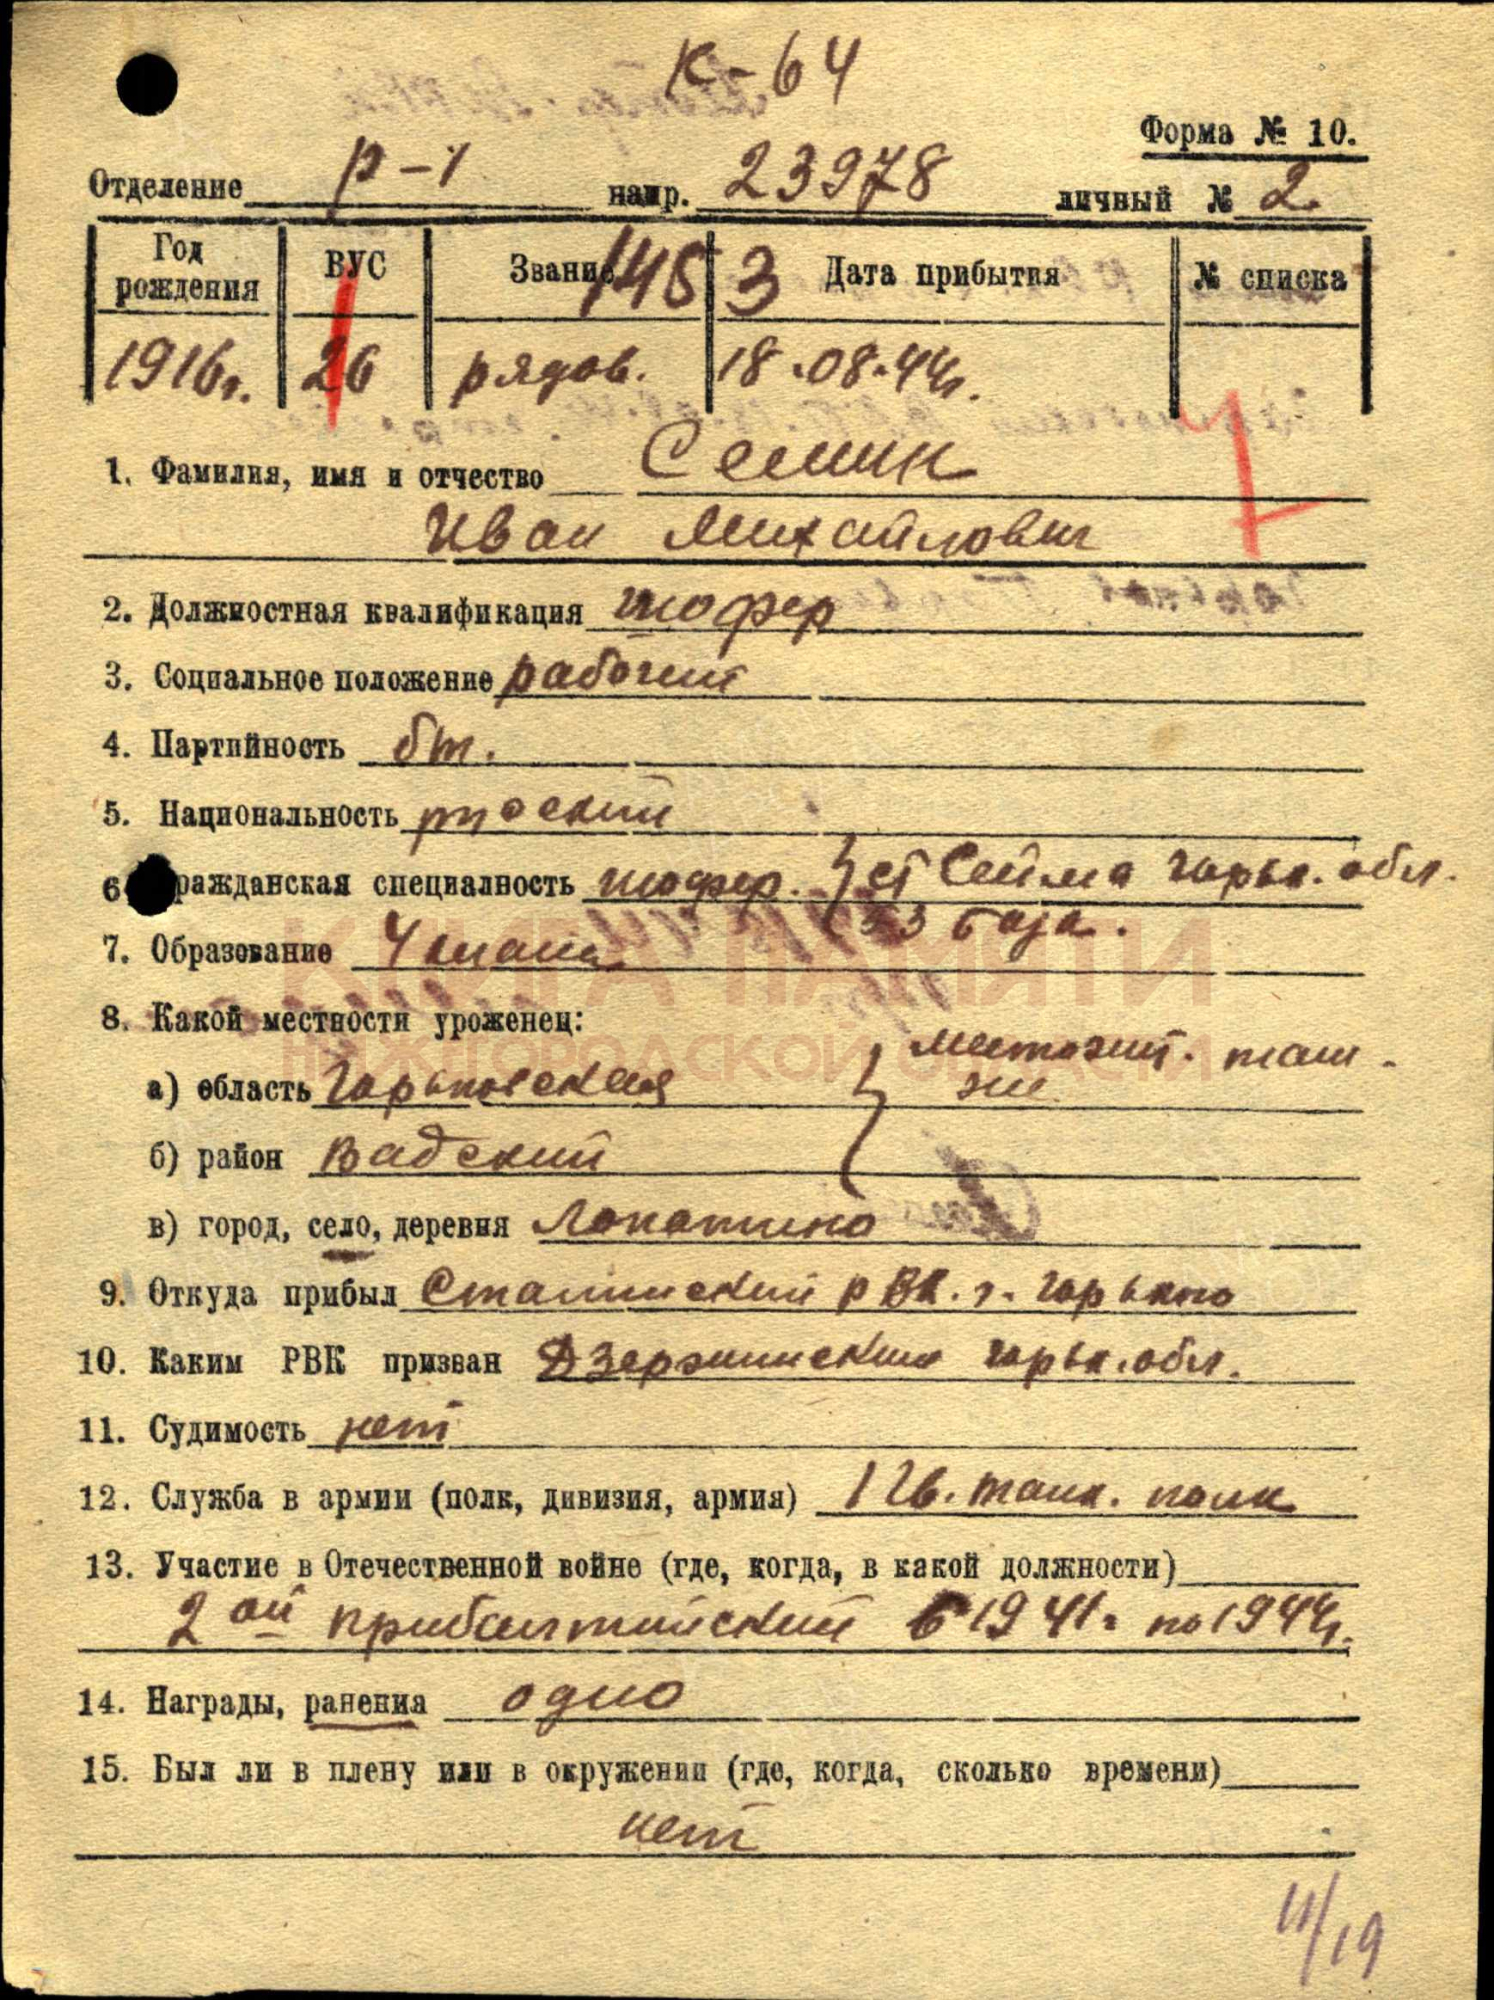 К-64
Форма № 10.
Отделение р-1 напр. 23978 личный № 2.
Год рождения ВУС Звание Дата прибытия № списка
1453
1916г. 26 рядов. 18.08.44г.
1. Фамилия, имя и отчество Семин
Иван Михайлович
2. Должностная квалификация шофер
3. Социальное положение рабочий
4. Партийность бп.
5. Национальность руский
6 ражданская специалность шофер. ст Сейма горьк. обл.
53 база.
7. Образование 4 класса
КНИГА ПАМЯТИ
НИЖЕГОРОДСКОЙ ОБЛАСТИ
8. Какой местности уроженец:
а) область Горьковская местожит. там
же
б) район Вадский
в) город, село, деревня Лопатино
9. Откуда прибыл Сталинский РВК. г. Горького
10. Каким РВК призван Дзержинским горьк. обл.
11. Судимость нет
12. Служба в армии (полк, дивизия, армия) 1 Гв. танк. полк
13. Участие в Отечественной войне (где, когда, в какой должности)
2ой прибалтийский с 1941г по 1944г.
14. Награды, ранения одно
15. Был ли в плену или в окружении (где, когда, сколько времени)
нет
11/19